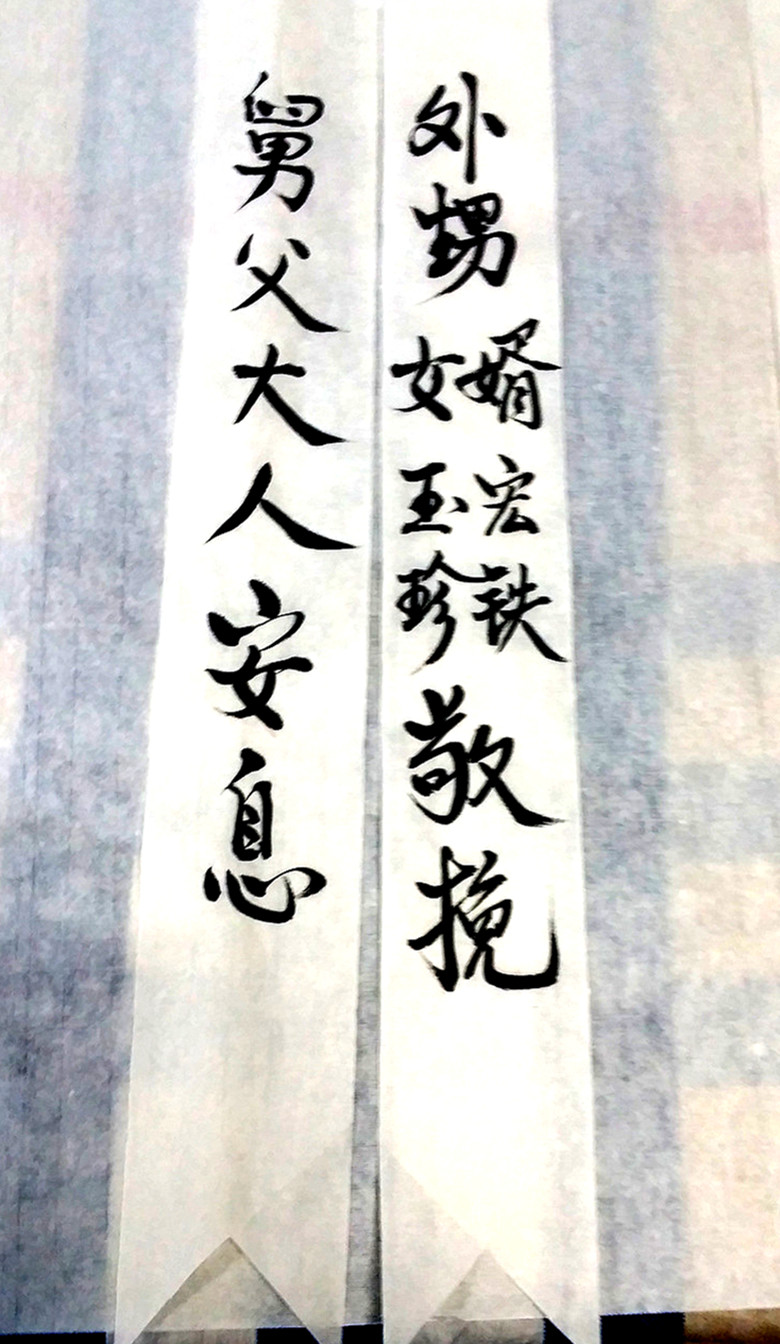 外甥女婿玉宏珍铁敬挽
舅父大人安息